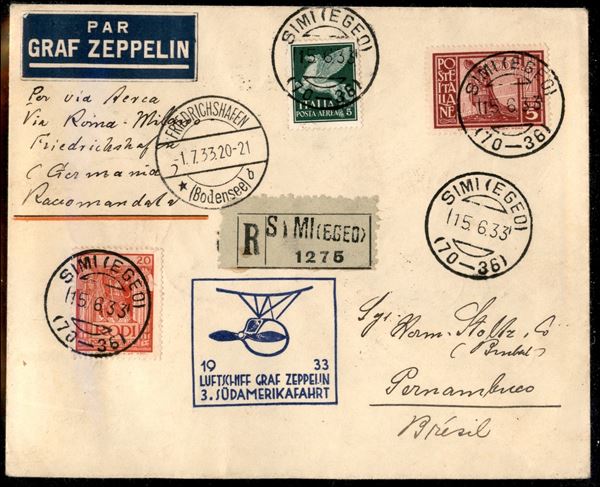 PAR
GRAF ZEPPELIN
Per via Aerea
Via Roma-Milano
Friedrichshafen
(Germania
Raccomandata
FRIEDRICHSHAFEN
-1.7.33.20-21
(Bodensee) b
SIMI (EGEO)
15.6.33
(70-36)
ITALIA
POSTA AEREA 5
SIMI (EGEO)
15.6.33
(70-36)
POSTE ITALIANE
5
SIMI (EGEO)
15.6.33
(70-36)
R SIMI (EGEO)
1275
SIMI (EGEO)
15.6.33
(70-36)
20
RODI
19 33
LUFTSCHIFF GRAF ZEPPELIN
3. SÜDAMERIKAFAHRT
Herm. Stoltz Co
Pernambuco
Brésil